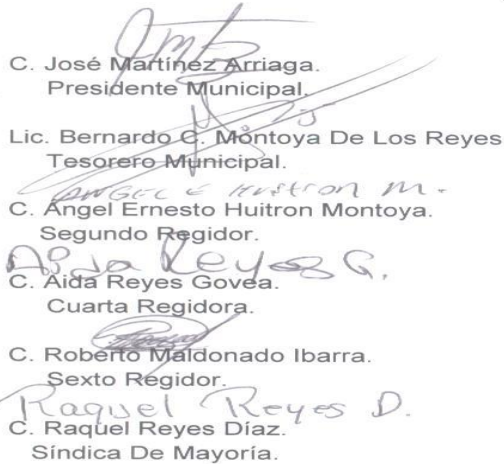 C. José Martínez Arriaga.
Presidente Municipal.
Lic. Bernardo C. Montoya De Los Reyes
Tesorero Municipal.
ANGEL E HUITRON M.
C. Ángel Ernesto Huitron Montoya.
Segundo Regidor.
Aida Reyes G.
C. Aida Reyes Govea.
Cuarta Regidora.
C. Roberto Maldonado Ibarra.
Sexto Regidor.
Raquel Reyes D.
C. Raquel Reyes Díaz.
Síndica De Mayoría.